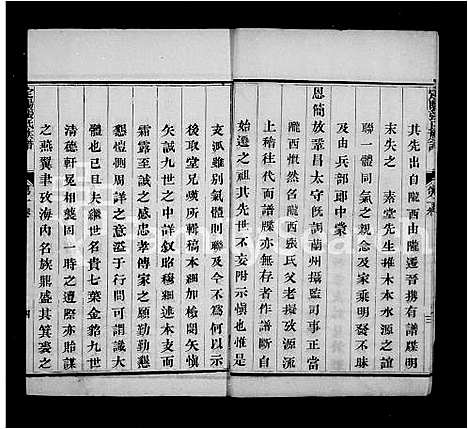 其先出自隴西由隴遷吾攜有譜牒明
末失之 素堂先生推木本水源之誼
聯一體同氣之觀念及家乘明發不昧
及由兵部郎中蒙
恩簡放鞏昌太守旣調蘭州攝監司事正當
隴西慨然念隴西張氏父老擬攷源流
上稽往代而譜牒亦亡前者作譜斷自
始遷之祖其先世不妄附示愼也惟是
支派雖別氣體則聯及今不爲何以示
後取堂兄嘆所輯稿本細加檢閱矢愼
矢誠九世之中詳敘昭穆縷述本支而
霜露至誠之感忠孝傳家之願勤勤懇
懇愷惻周詳之意溢于行間可謂識大
體也已且夫繼世名貴七葉金貂九世
清德軒冕相襲固一時之遭際亦貽謀
之燕翼聿攷海內名族熊盛其箕裘之